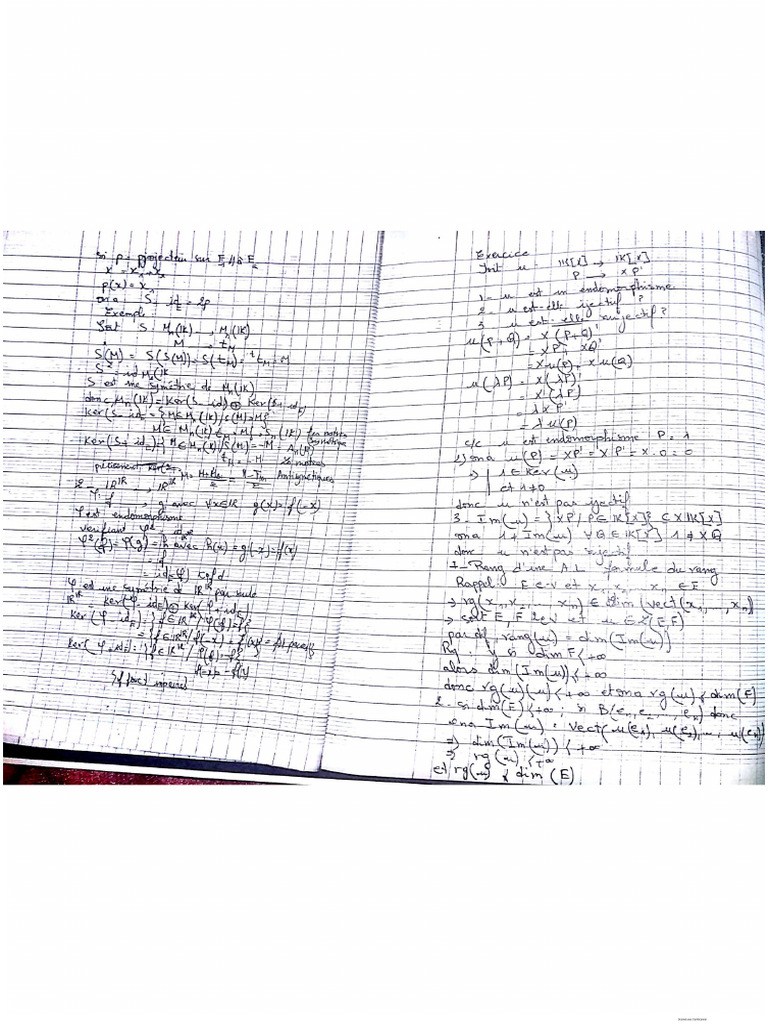 Si p: projection sur E₁ // à E₂
x = x₁ + x₂
p(x) = x₁
on a S - id_E = 2p
Exemple
Soit S: M_n(IK) → M_n(IK)
M → ᵗM
S²(M) = S(S(M)) = S(ᵗM) = ᵗᵗM = M
S² = id M_n(IK
S est une symétrie de M_n(IK)
donc M_n(IK) = Ker(S - id) ⊕ Ker(S + id_E)
Ker(S - id_E = {M ∈ M_n(IK) / S(M) = M}
M ∈ M_n(IK) / ᵗM = M = S_n(IK) les matrices symétrique
Ker(S + id_E) = {M ∈ M_n(IK) / S(M) = -M = A_n(IK)
ᵗM = -M les matrices
Antisymétriques
2 - φ: IR^IR → IR^IR
f → g avec ∀x∈IR g(x) = f(-x)
φ est endomorphisme
vérifiant φ² = id
φ²(f) = φ(g) = h avec h(x) = g(-x) = f(x)
= f
φ est une symétrie d IR^IR
IR^IR = Ker(φ - id_E) ⊕ Ker(φ + id_E)
Ker(φ - id_E) = {f ∈ IR^IR / φ(f) = f}
= {f ∈ IR^IR / f(-x) = f(x)} = {f paires}
Ker(φ + id_E) = {f ∈ IR^IR / φ(f) = -f}
f(-x) = -f(x)
{f fonct impaires}
Exercice
Soit u: IK[X] → IK[X]
P → XP'
1 - u est un endomorphisme
2 - u est-elle ijectif ?
3 u est-elle surjectif ?
u(P+Q) = X(P+Q)'
= XP' + XQ'
= X u(P) + X u(Q)
u(λP) = X(λP)'
= X(λP')
= λXP'
= λu(P)
c/c u est endomorphisme P = 1
2) on a u(P) = XP' = XP' = X.0 = 0
⇒ | 1 ∈ Ker(u)
| et 1 ≠ 0
donc u n'est pas ijectif
3 - Im(u) = {XP' / P ∈ IK[X]} ⊂ X IK[X]
on a 1 ∉ Im(u) ∀Q ∈ IK[X] 1 ≠ XQ
donc u n'est pas surjectif
7 - Rang d'une A.L formule du rang
Rappel: E e-v et x₁, x₂, ... x_n ∈ E
⇒ rg(x₁, x₂, ... x_n) = dim(vect(x₁, ..., x_n)
⇒ soit E, F 2 ev et u ∈ L(E,F)
par df rang(u) = dim(Im(u))
Rq: 1 si dim F < +∞
alors dim(Im(u)) < +∞
donc rg(u) < +∞ et on a rg(u) ≤ dim(F)
2 - si dim(E) < +∞ ; si B(e₁, e₂, ..., e_n) donc
on a Im(u) = Vect(u(e₁), u(e₂), ..., u(e_n))
⇒ dim(Im(u)) < +∞
⇒ rg(u) < +∞
et rg(u) ≤ dim(E)